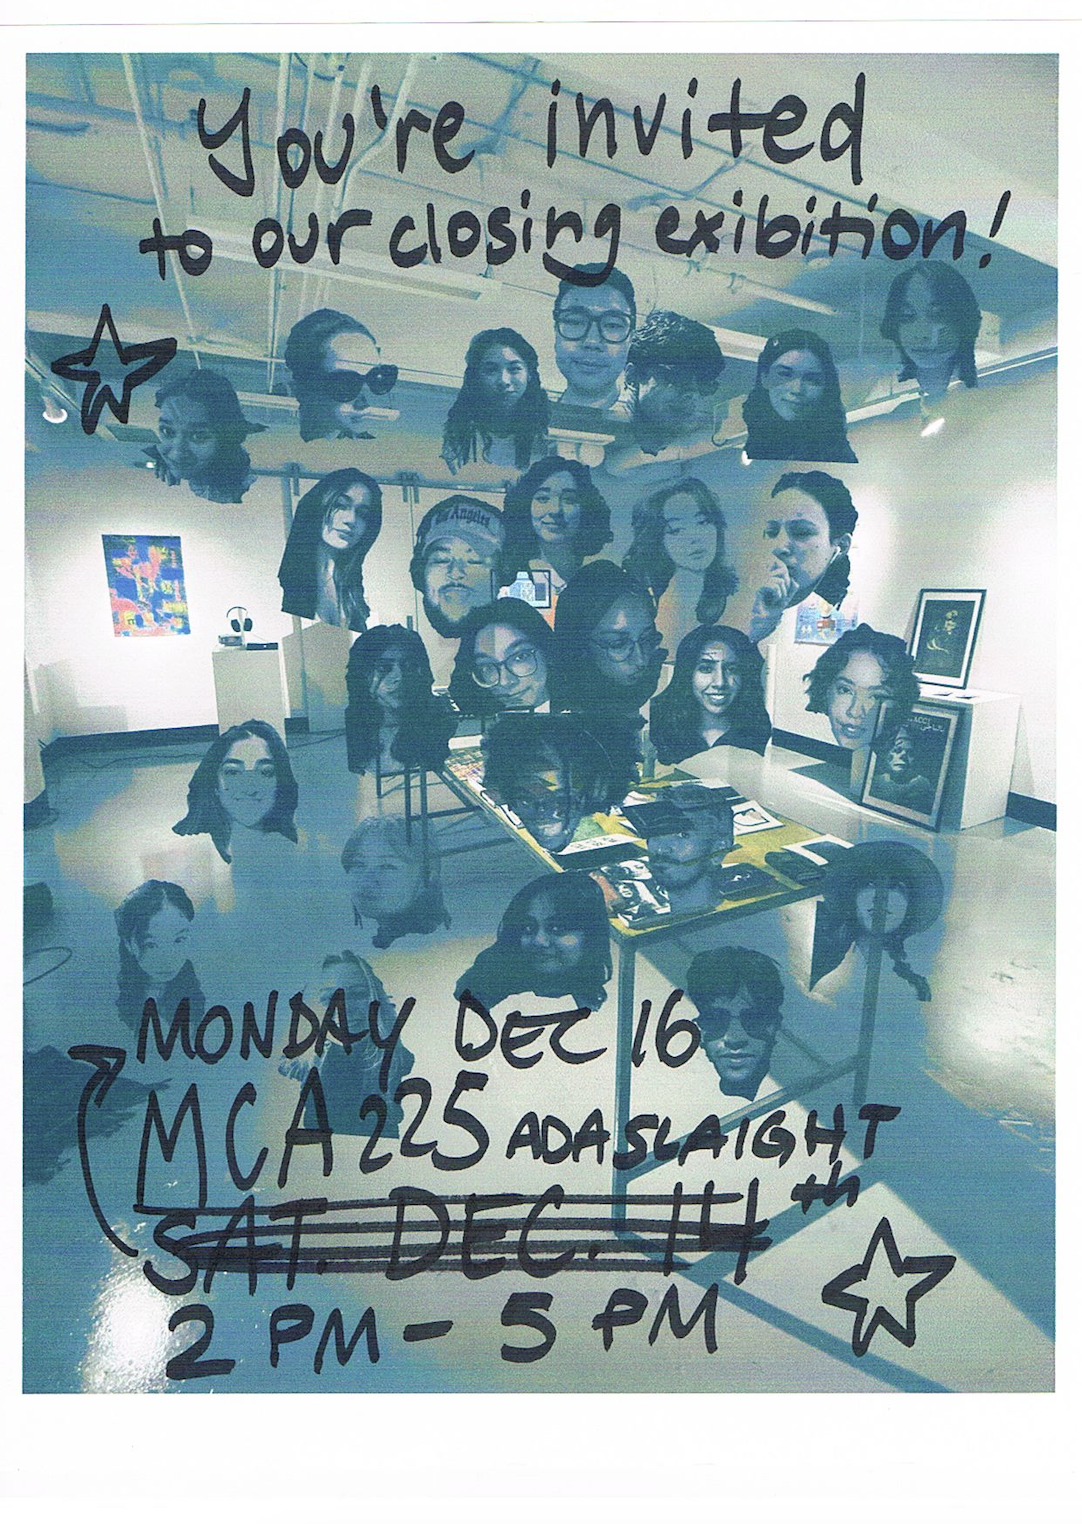 You're invited
to our closing exibition!
Los Angeles
MONDAY DEC 16
MCA 225 ADA SLAIGHT
SAT. DEC. 14th
2 PM - 5 PM